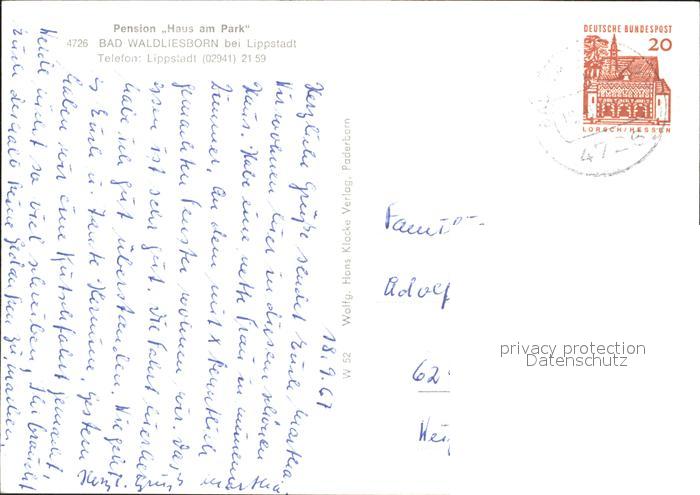 Pension „Haus am Park"
4726 BAD WALDLIESBORN bei Lippstadt
Telefon: Lippstadt (02941) 21 59
DEUTSCHE BUNDESPOST
20
LORSCH/HESSEN
W 52 Wolfg. Hans Klocke Verlag, Paderborn
18.9.67
Herzliche Grüße sendet Euch Martha.
Wir wohnen hier in diesem schönen
Haus. Habe eine nette Frau in meinem
Zimmer. An dem mit x
gemachten Fenster wohnen wir. Das
Essen ist sehr gut. Die Fahrt hierher
habe ich gut überstanden. Wie geht
es Euch u. Tante Hermine. Gestern
haben wir eine Kutschfahrt gemacht.
Heide nicht so viel schreiben, Ihr braucht
Euch deshalb keine Gedanken zu machen.
Herzl.
Martha.
Adolf
62
privacy protection
Datenschutz